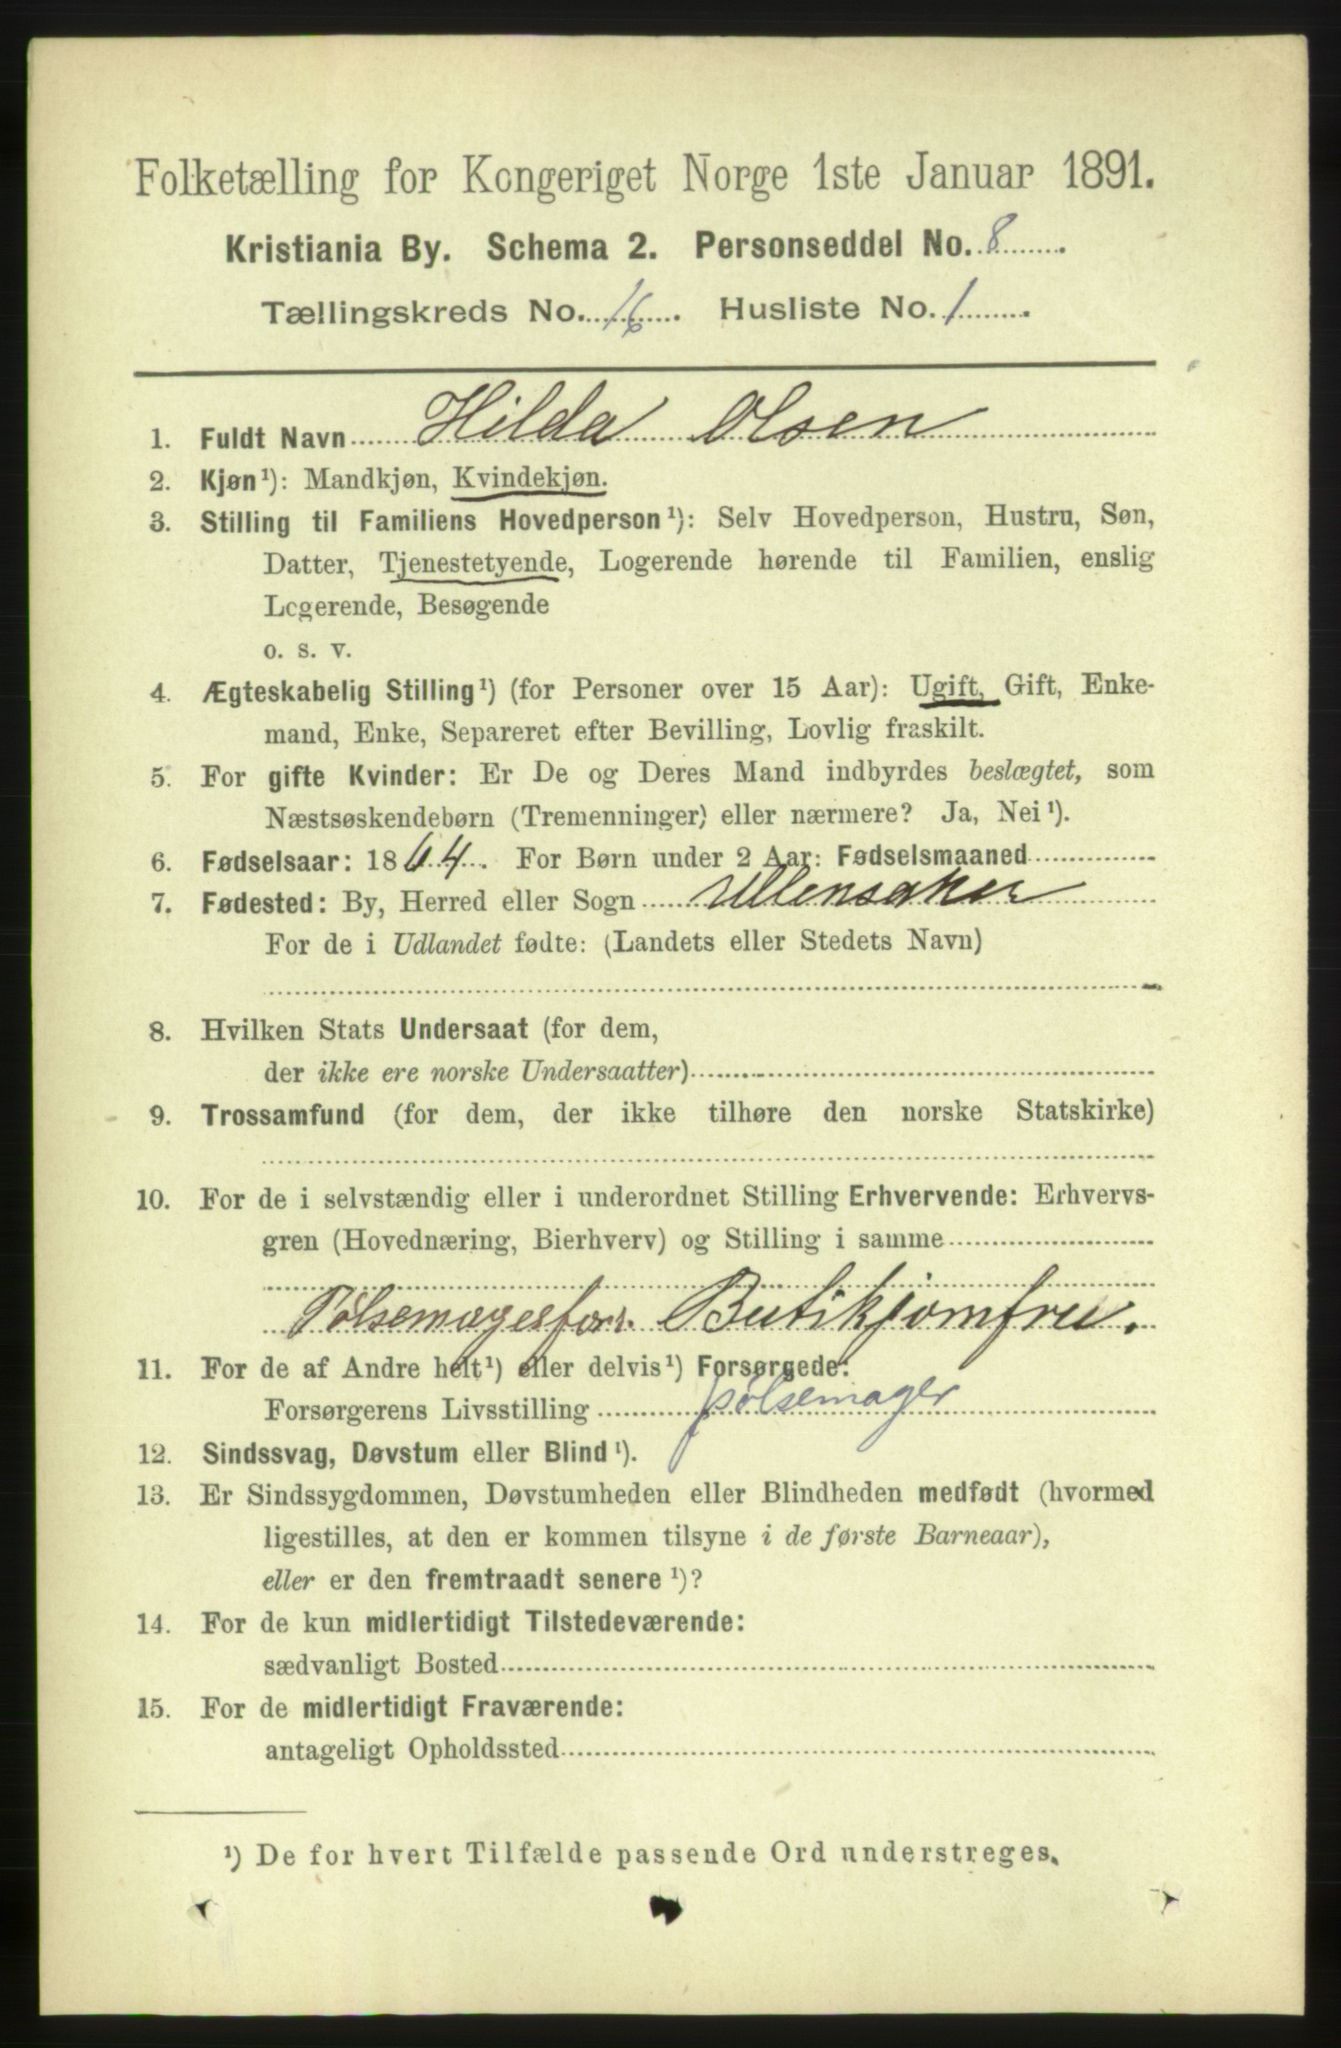 Folketælling for Kongeriget Norge 1ste Januar 1891.
Kristiania By. Schema 2. Personseddel No. 8
Tællingskreds No. 16. Husliste No. 1
1. Fuldt Navn Hilda Olsen
2. Kjøn¹): Mandkjøn, Kvindekjøn.
3. Stilling til Familiens Hovedperson¹): Selv Hovedperson, Hustru, Søn,
Datter, Tjenestetyende, Logerende hørende til Familien, enslig
Logerende, Besøgende
o. s. v.
4. Ægteskabelig Stilling¹) (for Personer over 15 Aar): Ugift, Gift, Enke-
mand, Enke, Separeret efter Bevilling, Lovlig fraskilt.
5. For gifte Kvinder: Er De og Deres Mand indbyrdes beslægtet, som
Næstsøskendebørn (Tremenninger) eller nærmere? Ja, Nei¹).
6. Fødselsaar: 1864. For Børn under 2 Aar: Fødselsmaaned
7. Fødested: By, Herred eller Sogn Ullensaker
For de i Udlandet fødte: (Landets eller Stedets Navn)
8. Hvilken Stats Undersaat (for dem,
der ikke ere norske Undersaatter)
9. Trossamfund (for dem, der ikke tilhøre den norske Statskirke)
10. For de i selvstændig eller i underordnet Stilling Erhvervende: Erhvervs-
gren (Hovednæring, Bierhverv) og Stilling i samme
Pølsemagerforr. Butikjomfru.
11. For de af Andre helt¹) eller delvis¹) Forsørgede:
Forsørgerens Livsstilling pølsemager
12. Sindssvag, Døvstum eller Blind¹).
13. Er Sindssygdommen, Døvstumheden eller Blindheden medfødt (hvormed
ligestilles, at den er kommen tilsyne i de første Barneaar),
eller er den fremtraadt senere¹)?
14. For de kun midlertidigt Tilstedeværende:
sædvanligt Bosted
15. For de midlertidigt Fraværende:
antageligt Opholdssted
¹) De for hvert Tilfælde passende Ord understreges.